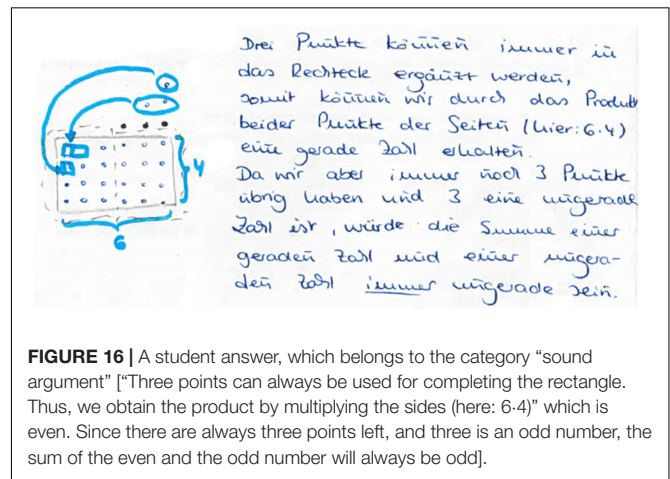 Drei Punkte können immer in
das Rechteck ergänzt werden,
somit können wir durch das Produkt
beider Punkte der Seiten (hier: 6·4)
eine gerade Zahl erhalten.
Da wir aber immer noch 3 Punkte
übrig haben und 3 eine ungerade
Zahl ist, würde die Summe einer
geraden Zahl und einer ungera-
den Zahl immer ungerade sein.
4
6
FIGURE 16 | A student answer, which belongs to the category “sound
argument” [“Three points can always be used for completing the rectangle.
Thus, we obtain the product by multiplying the sides (here: 6·4)” which is
even. Since there are always three points left, and three is an odd number, the
sum of the even and the odd number will always be odd].